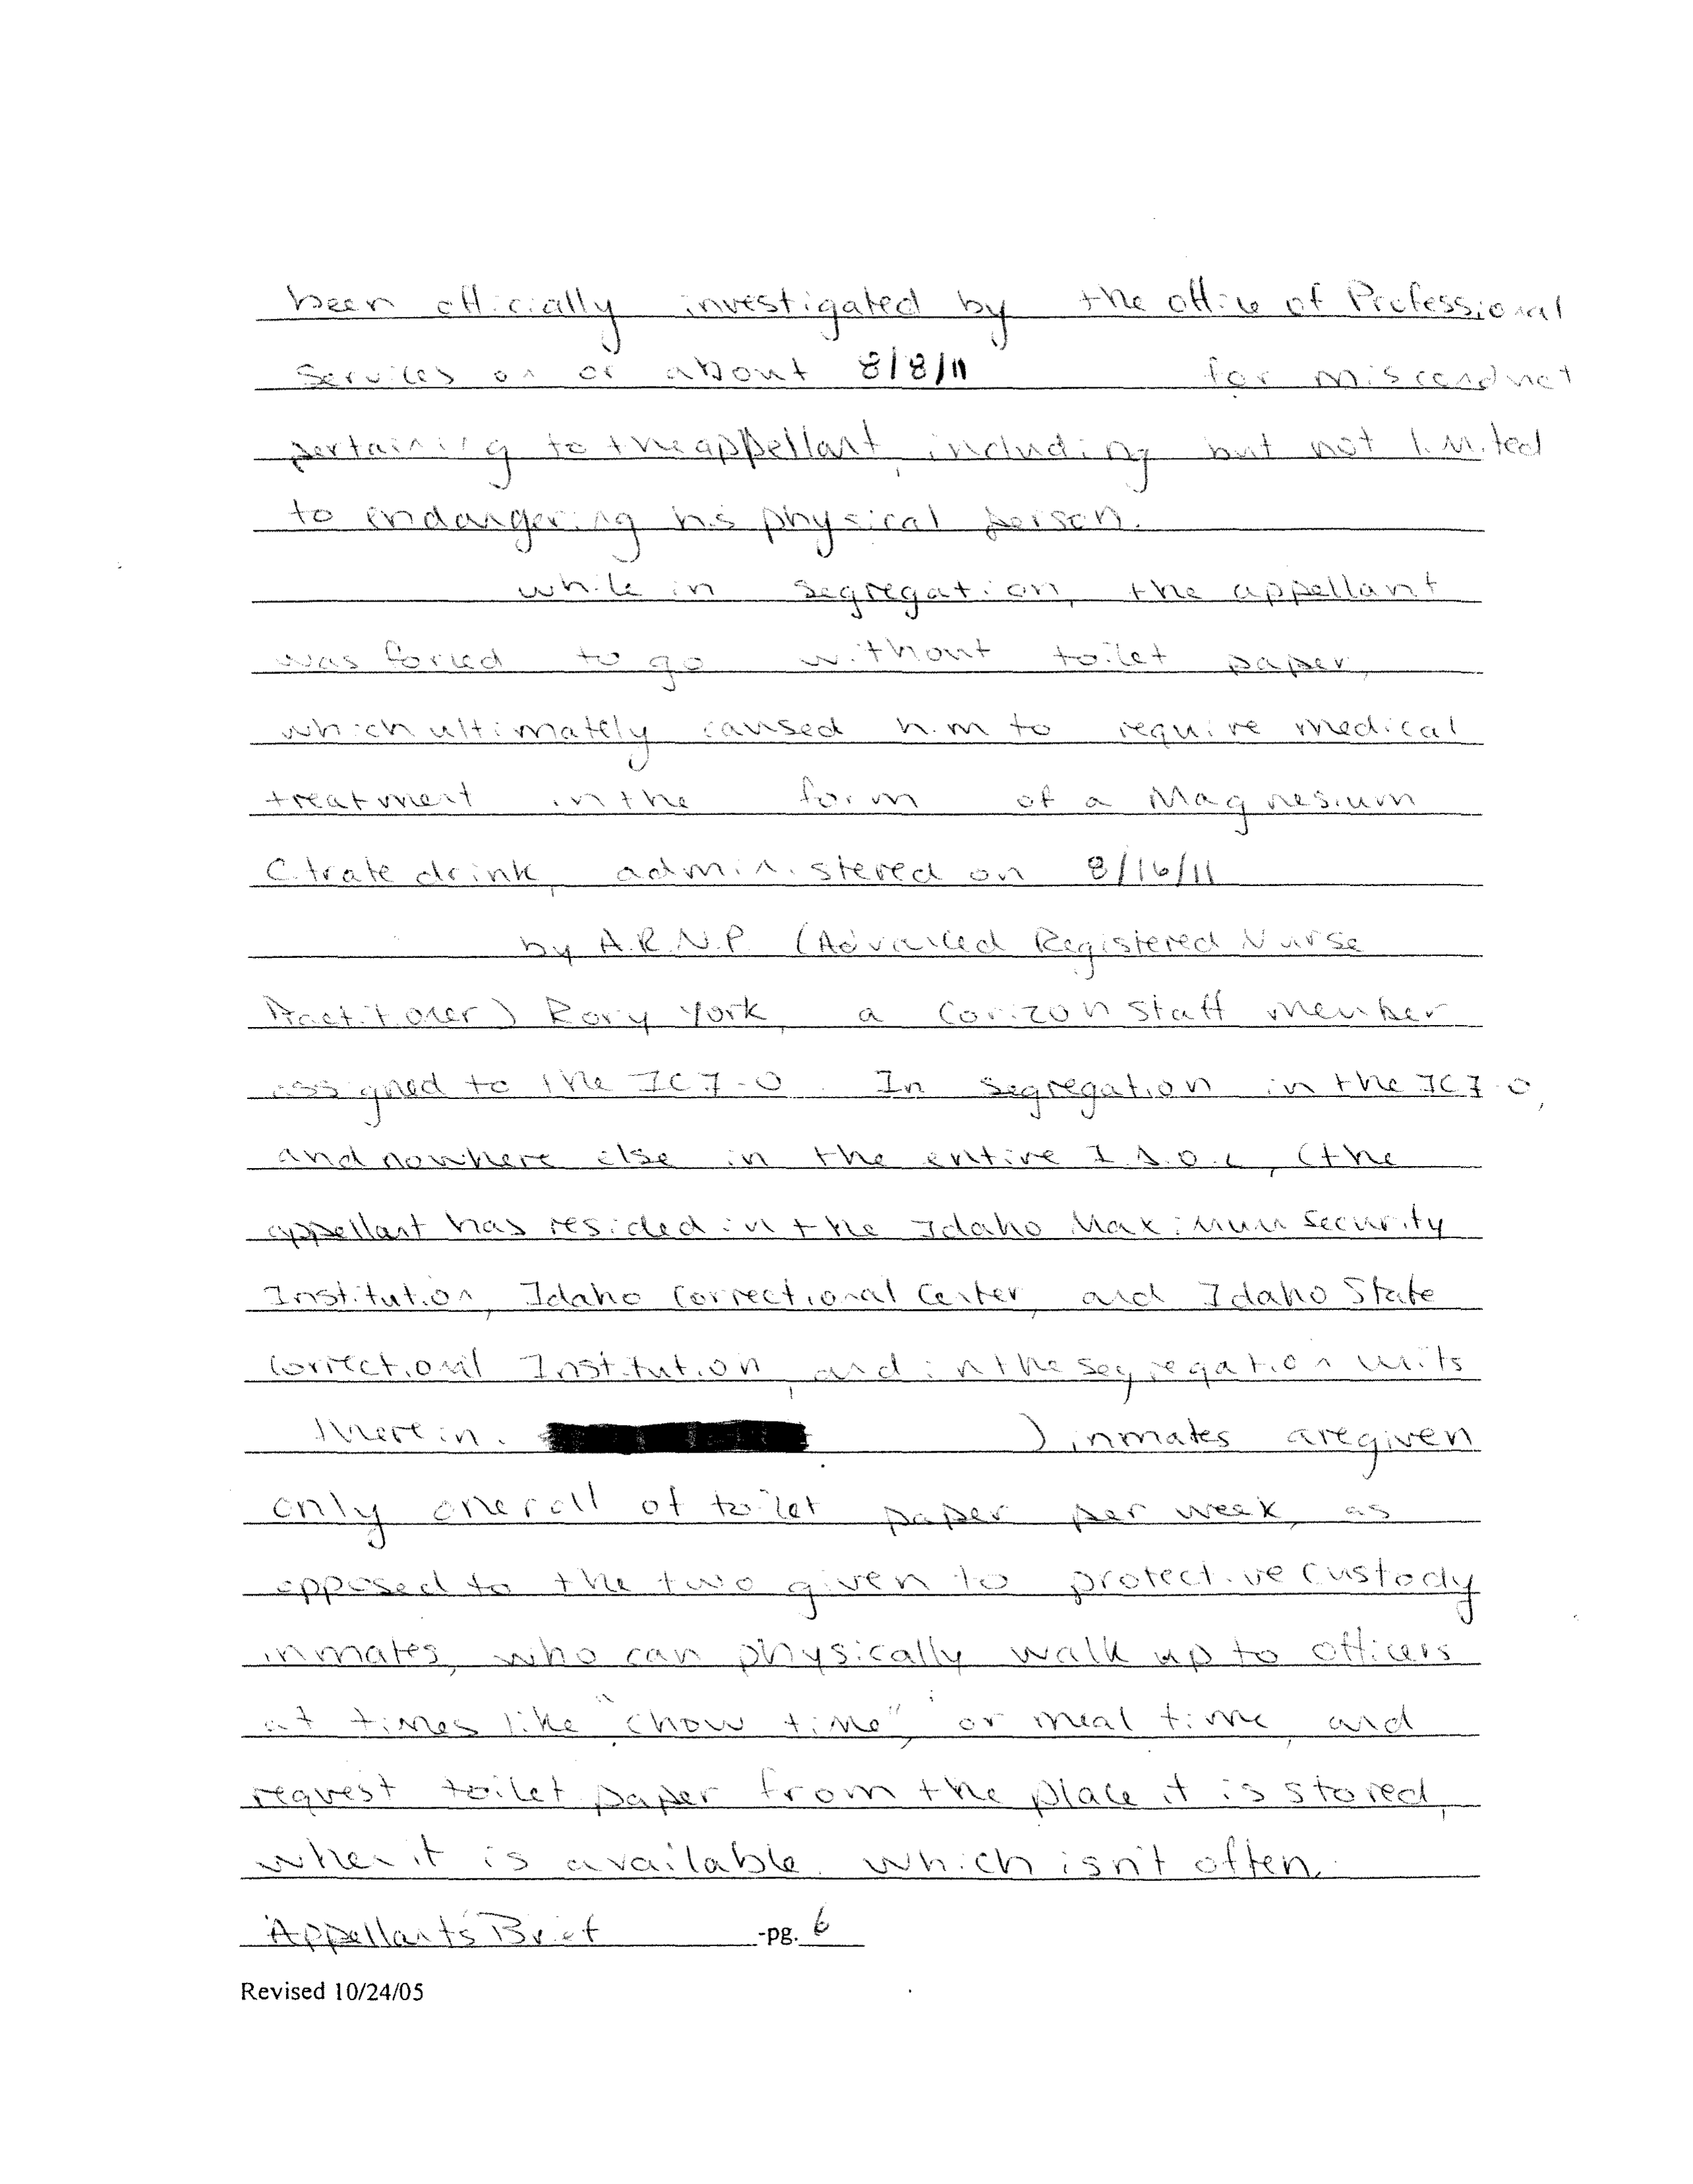 been officially investigated by the office of Professional
Services on or about 8/8/11 for misconduct
pertaining to the appellant, including but not limited
to endangering his physical person.
while in segregation, the appellant
was forced to go without toilet paper,
which ultimately caused him to require medical
treatment in the form of a Magnesium
Citrate drink, administered on 8/16/11
by A.R.N.P. (Advanced Registered Nurse
Practitioner) Rory York, a Corizon staff member
assigned to the ICI-O. In segregation in the ICI-O,
and nowhere else in the entire I.D.O.C, (the
appellant has resided in the Idaho Maximum Security
Institution, Idaho Correctional Center, and Idaho State
Correctional Institution, and in the segregation units
therein. ) inmates are given
only one roll of toilet paper per week, as
opposed to the two given to protective custody
inmates, who can physically walk up to officers
at times like "chow time", or meal time, and
request toilet paper from the place it is stored,
when it is available. which isn't often.
Appellants Brief -pg. 6
Revised 10/24/05